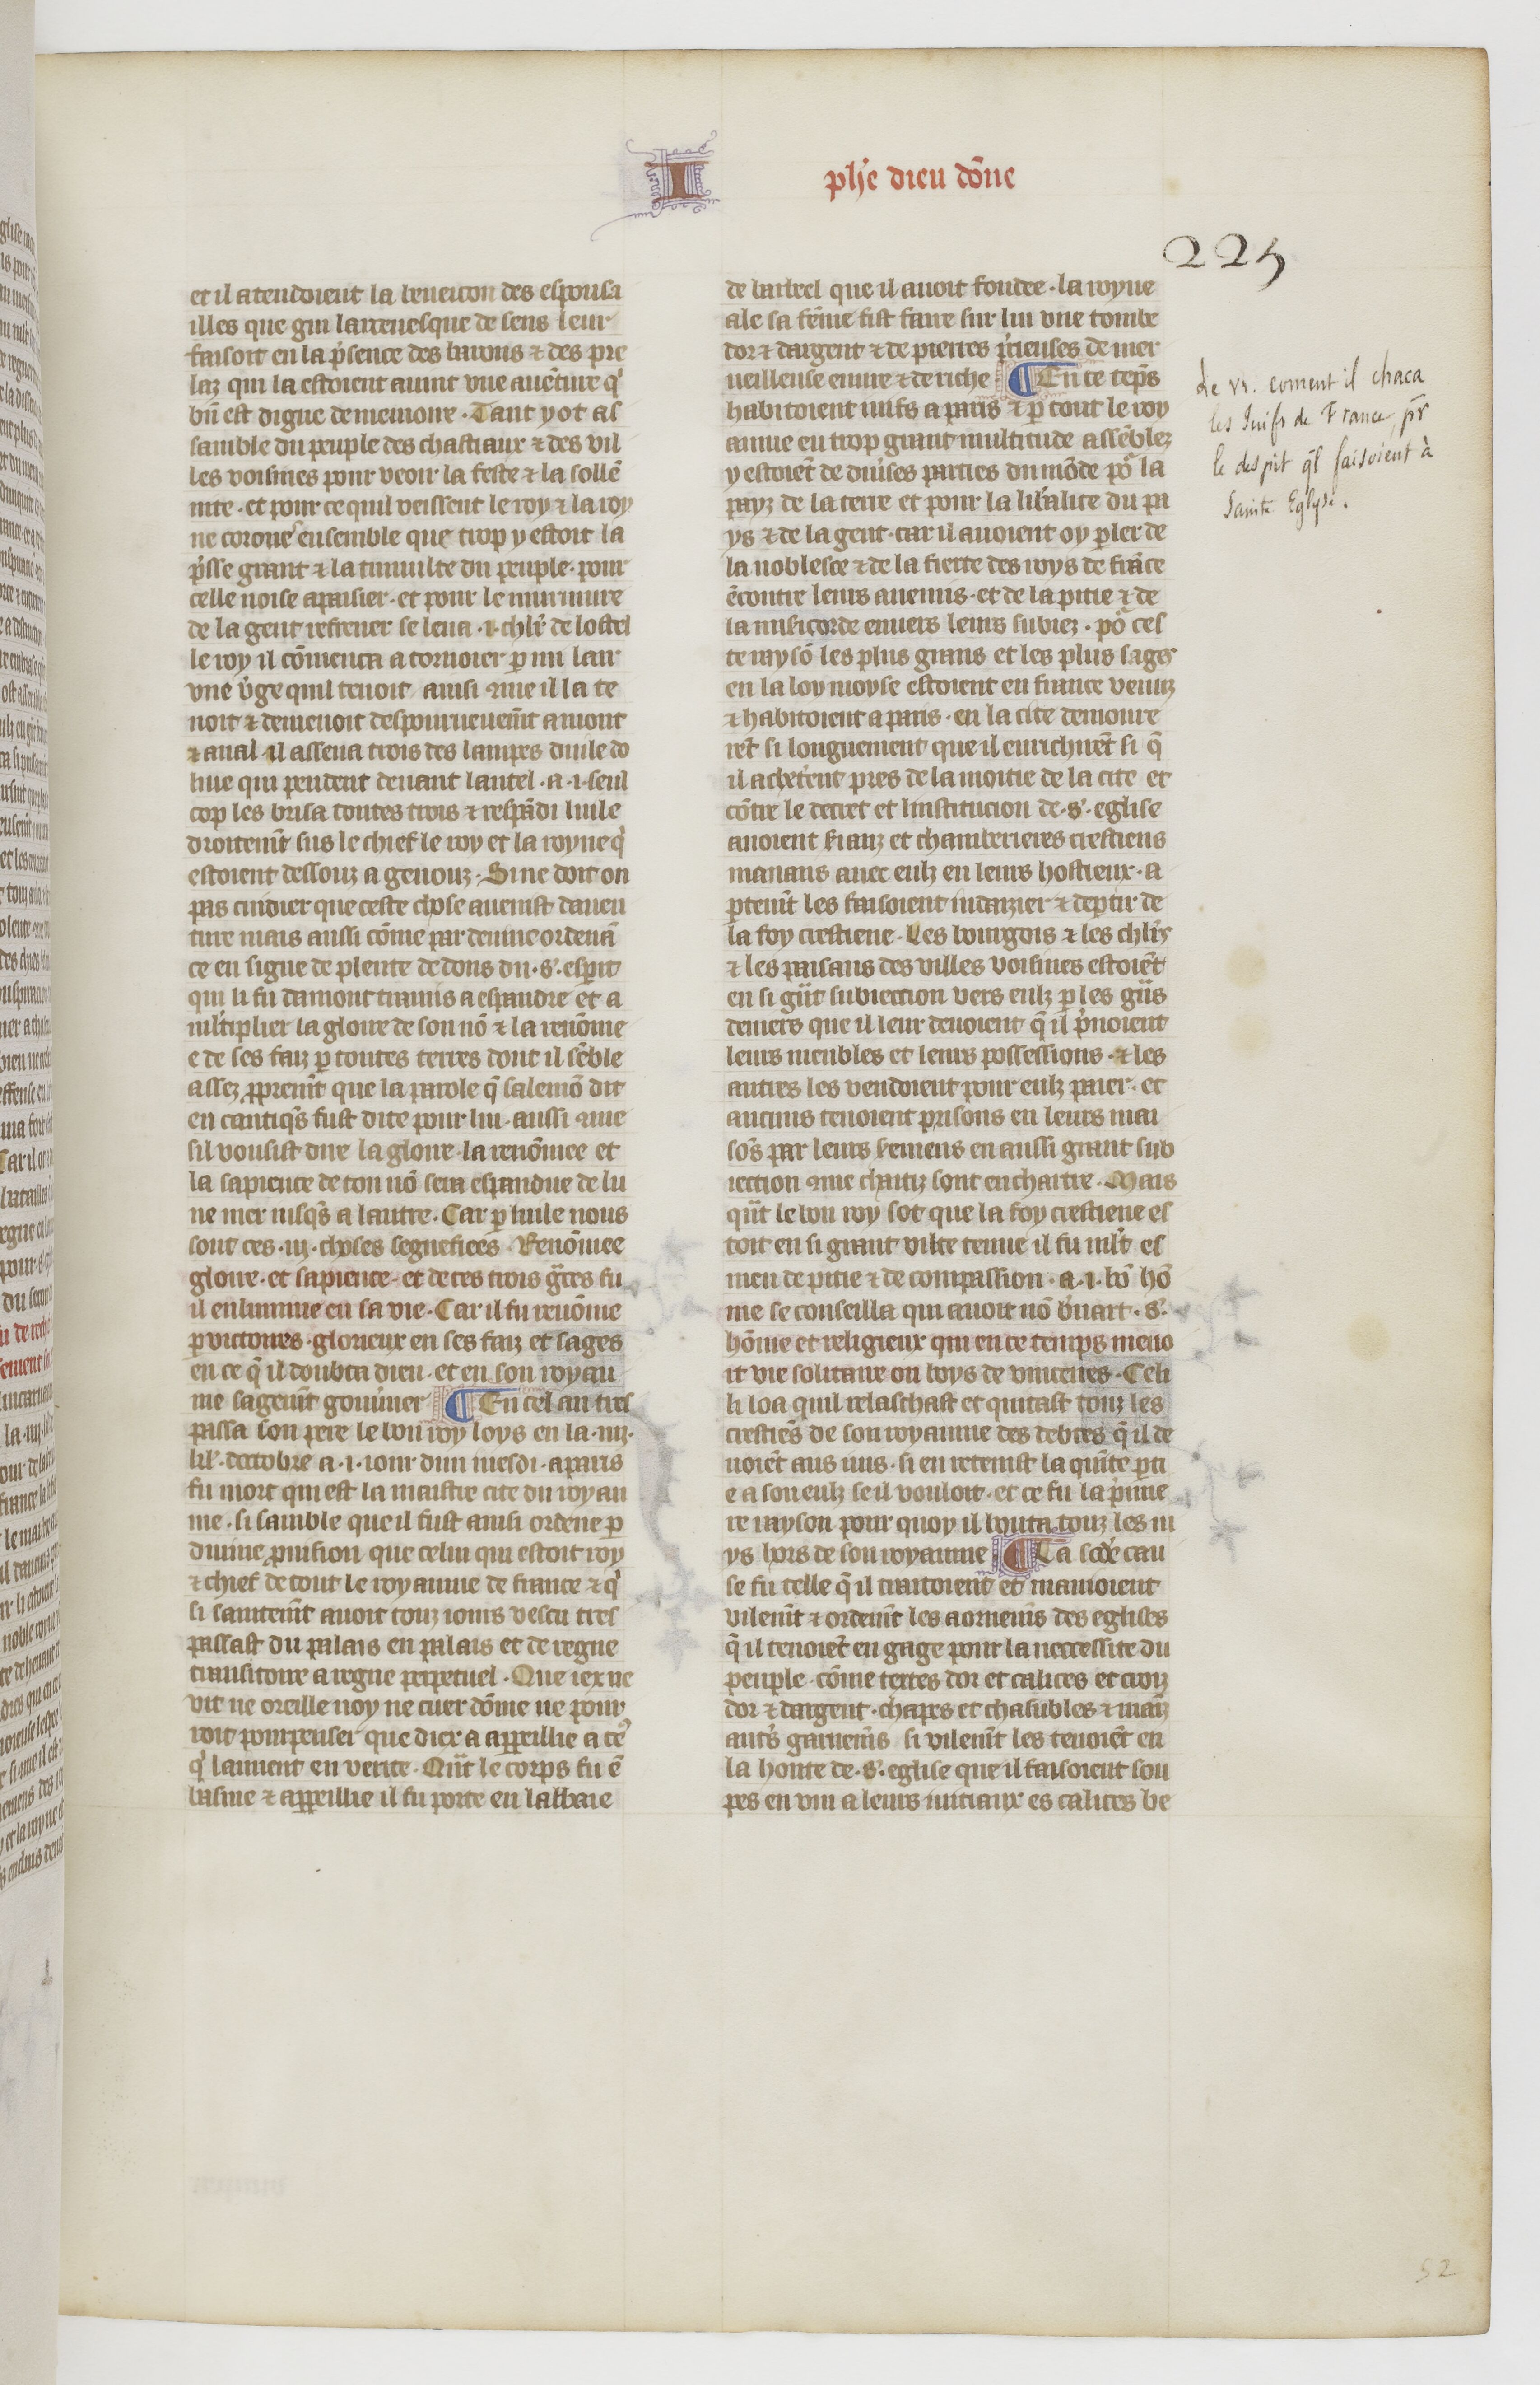 I
phẽ dieu dõne
225
et il atendoient la beneicon des espousa
illes que gui larceuesque de sens leur
faisoit en la p̃sence des barons ⁊ des pre
laz qui la estoient auint vne auẽture q̾
bñ est digne de memoire · Tant y ot as
samble du peuple des chastiaux ⁊ des vil
les voisines pour veoir la feste ⁊ la sollẽ
nite · et pour ce quil veissent le roy ⁊ la roy
ne coroner ensemble que trop y estoit la
p̃sse grant ⁊ la tumulte du peuple · pour
celle noise apaisier · et pour le murmure
de la gent refrener se leua · i · chlr̃ de lostel
le roy il cõmenca a tornoier p mi lair
vne v̾ge quil tenoit ainsi ꝯme il la te
noit ⁊ demenoit despourueuem̃t amont
⁊ aual il assena trois des lampes duile do
liue qui pendent deuant lautel · a · i · seul
cop les brisa toutes trois ⁊ respãdi luile
droitem̃t sus le chief le roy et la royne q̾
estoient dessouz a genouz · Si ne doit on
pas cuidier que ceste chose auenist dauen
ture mais aussi cõme par deuine ordenã
ce en signe de plente de dons du · s̾ · esp̃it
qui li fu damont tramis a espandre et a
ml̃tiplier la gloire de son nõ ⁊ la renõme
e de ses faiz p toutes terres dont il sẽble
assez pprem̃t que la parole q̃ salemõ dit
en cantiq̃s fust dite pour lui · aussi ꝯme
sil vousist dire la gloire · la renõmee et
la sapience de ton nõ sera espandue de lu
ne mer iusq̃s a lautre · Car p huile nous
sont ces · iij · choses segnefiees · Renõmee
gloire · et sapience · et de ces trois g̃ces fu
il enlumine en sa vie · Car il fu renõme
p victoires · glorieux en ses faiz et sages
en ce q̃ il doubta dieu · et en son royau
me sagem̃t gouu̾ner ¶ En cel an tres
passa son pere le bon roy loys en la · iiij ·
kl̾ · dectobre a · i · iour dun iuesdi · a paris
fu mort qui est la maistre cite du royau
me · si samble que il fust ainsi ordene p
diuine prouision que celui qui estoit roy
⁊ chief de tout le royaume de france ⁊ q̾
si saintem̃t auoit touz iours vescu tres
passast du palais en palais et de regne
transitoire a regne perpetuel · Que iex ne
vit ne oreille noy ne cuer dõme ne pour
roit pourpenser que diex a appeillie a ce̾
q̾ laiment en verite · Qñt le corps fu ẽ
basme ⁊ appeillie il fu porte en labbaie
de barbeel que il auoit fondee · la royne
ale sa fẽme fist faire sur lui vne tombe
dor ⁊ dargent ⁊ de pierres p̾cieuses de mer
ueilleuse euure ⁊ de riche ¶ En ce tẽps
habitoient iuifs a paris ⁊ p tout le roy
aume en trop grant multitude assẽblez
y estoiẽt de diu̾ses parties du mõde põ la
payz de la terre et pour la lib̾alite du pa
ys ⁊ de la gent · car il auoient oy pler de
la noblesce ⁊ de la fierte des roys de frãce
ẽcontre leurs anemis · et de la pitie ⁊ de
la misẽcorde enuers leurs subiez · põ ces
te raysõ les plus grans et les plus sages
en la loy moyse estoient en france venuz
⁊ habitoient a paris · en la cite demoure
rẽt si longuement que il enrichirẽt si q̃
il achetẽrent pres de la moitie de la cite et
cõtre le decret et linstitucion de · s̾ · eglise
auoient sianz et chamberieres crestiens
manans auec eulz en leurs hostieux · a
ptem̃t les faisoient iudaizier ⁊ deptir de
la foy crestiene · Les bourgois ⁊ les chlr̃s
⁊ les paisans des villes voisines estoiẽt
en si g̃nt subiection vers eulz p les g̃ns
deniers que il leur deuoient q̃ il p̾noient
leurs meubles et leurs possessions · ⁊ les
autres les vendoient pour eulz paier · et
aucuns tenoient prisons en leurs mai
sõs par leurs seremens en aussi grant sub
iection ꝯme chaitiz sont en chartre · Mais
qñt le bon roy sot que la foy crestiene es
toit en si grant vilte tenue il fu ml̾t es
meu de pitie ⁊ de compassion · a · i · bõ hõ
me se conseilla qui auoit nõ b̾nart · s̾ ·
hõme et religieux qui en ce temps meno
it vie solitaire ou boys de vincenes · Celi
li loa quil relaschast et quitast touz les
crestiẽs de son royaume des debtes q̃ il de
uoiẽt aus iuis · si en retenist la quĩte pti
e a son eulz se il vouloit · et ce fu la p̾mie
re rayson pour quoy il bouta touz les iu
ys hors de son royaume ¶ La scd̾e cau
se fu telle q̃ il traitoient et manioient
vilem̃t ⁊ ordem̃t les aornem̃s des eglises
q̃ il tenoiẽt en gage pour la neccessite du
peuple · cõme textes dor et calices et croiz
dor ⁊ dargent · chapes et chasubles ⁊ maĩz
aut̾s garnem̃s si vilem̃t les tenoiẽt en
la honte de · s̾ · eglise que il faisoient sou
pes en vin a leurs iuitiaux es calices be
Le vi. coment il chaca
les Juifs de France, pr̃
le despit q̃l faisoient à
Sainte Eglyse.
52